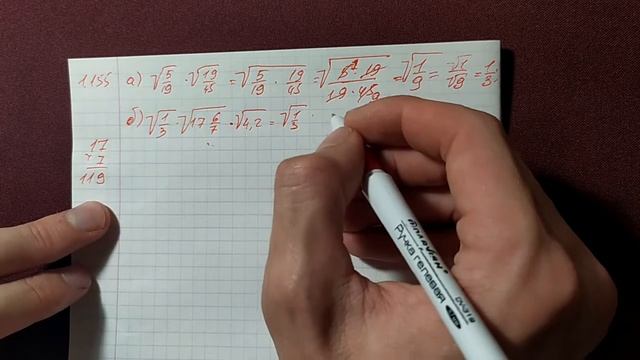 1155 а) √5/19 · √19/45 = √5/19 · 19/45 = √5¹ · 19/19 · 45₉ = √1/9 = √1/√9 = 1/3.
б) √1/3 · √17 6/7 · √4,2 = √1/3 ·
17
× 7
119
Ручка гелевая